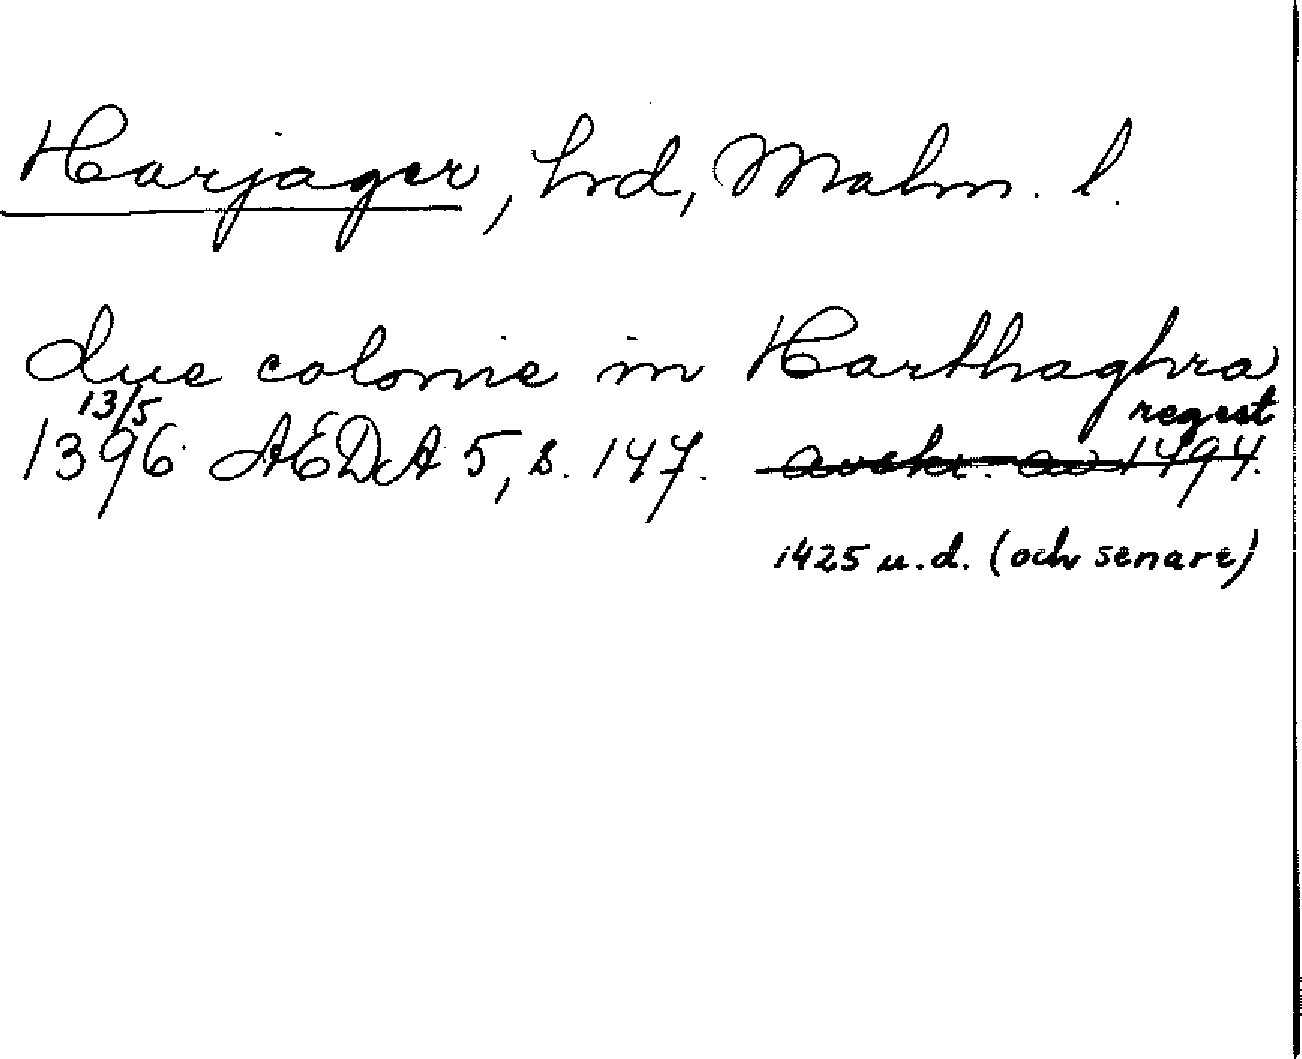 Harjager, hrd, Malm. l.
due colonie in Harthaghra
13/5 regest
1396 ÆDA 5, s. 147. avskr. av 1494.
1425 u.d. (och senare)